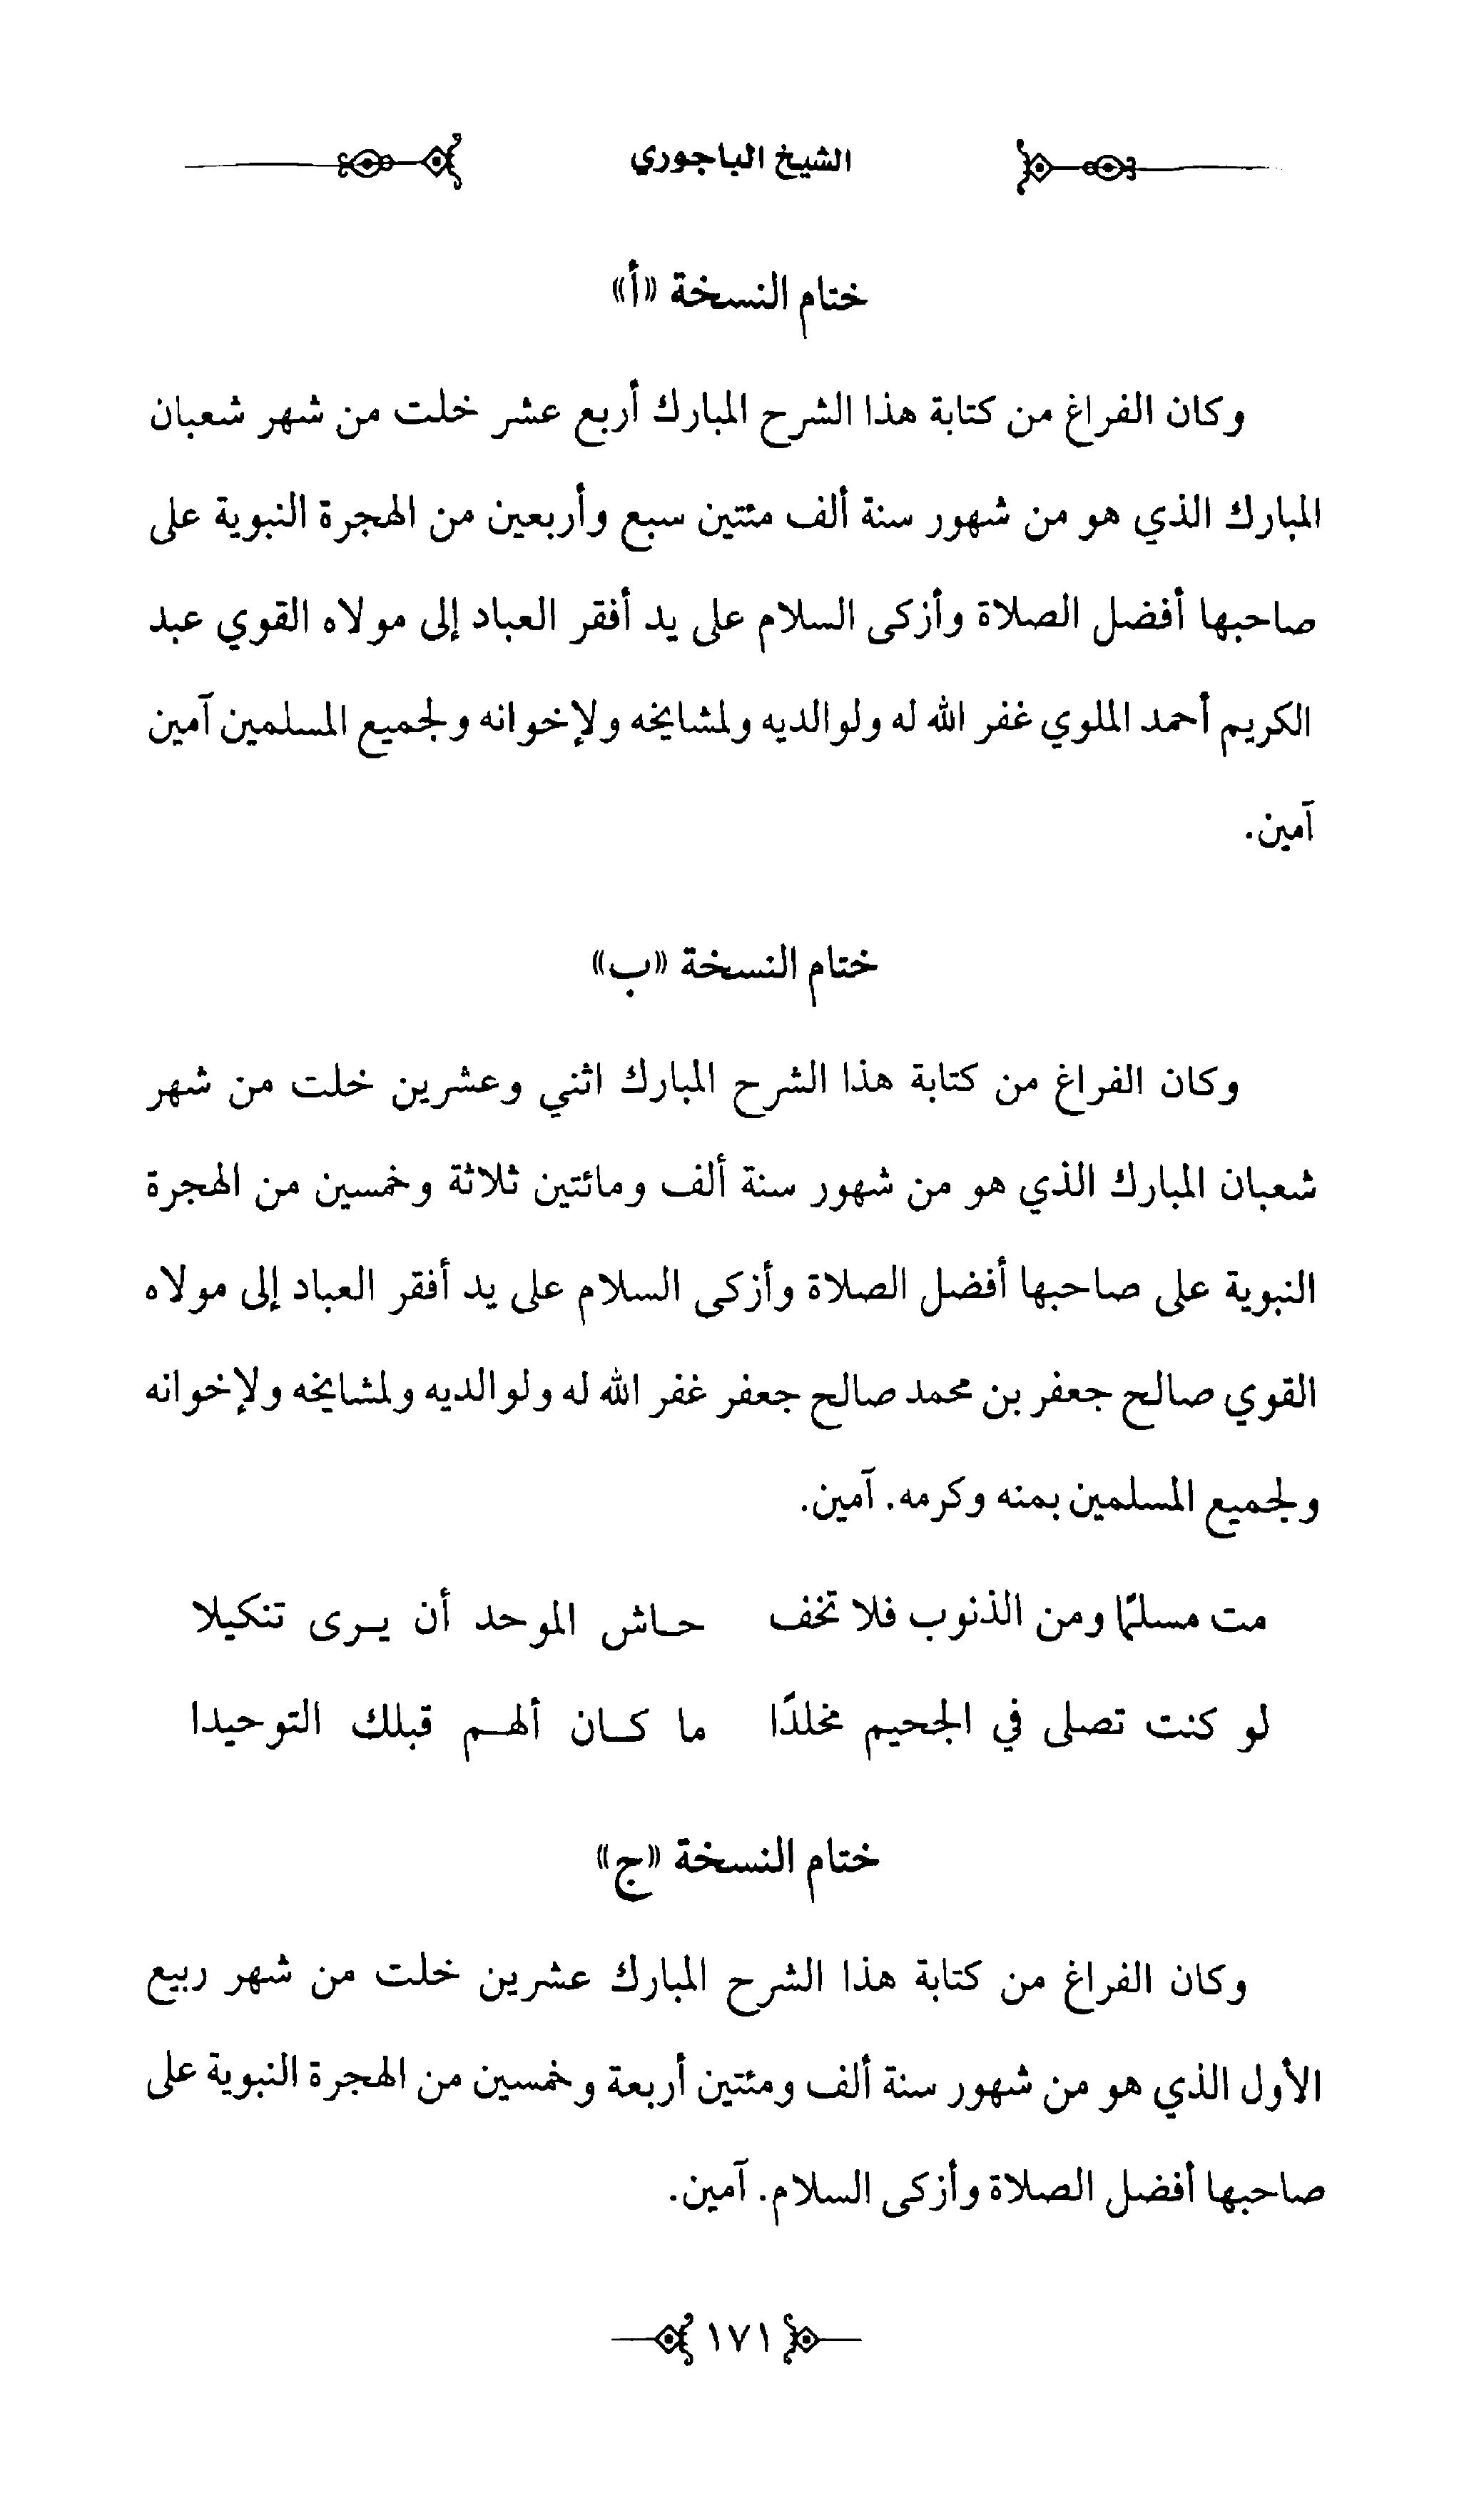 الشيخ الباجوري
ختام النسخة «أ»
وكان الفراغ من كتابة هذا الشرح المبارك أربع عشر خلت من شهر شعبان
المبارك الذي هو من شهور سنة ألف مئتين سبع وأربعين من الهجرة النبوية على
صاحبها أفضل الصلاة وأزكى السلام على يد أفقر العباد إلى مولاه القوي عبد
الكريم أحمد الملوي غفر الله له ولوالديه ولمشايخه ولإخوانه ولجميع المسلمين آمين
آمين.
ختام النسخة «ب»
وكان الفراغ من كتابة هذا الشرح المبارك اثني وعشرين خلت من شهر
شعبان المبارك الذي هو من شهور سنة ألف ومائتين ثلاثة وخمسين من الهجرة
النبوية على صاحبها أفضل الصلاة وأزكى السلام على يد أفقر العباد إلى مولاه
القوي صالح جعفر بن محمد صالح جعفر غفر الله له ولوالديه ولمشايخه ولإخوانه
ولجميع المسلمين بمنه وكرمه. آمين.
مت مسلمًا ومن الذنوب فلا تخف حاش الموحد أن يرى تنكيلا
لو كنت تصلى في الجحيم مخلدًا ما كان ألهم قبلك التوحيدا
ختام النسخة «ج»
وكان الفراغ من كتابة هذا الشرح المبارك عشرين خلت من شهر ربيع
الأول الذي هو من شهور سنة ألف ومئتين أربعة وخمسين من الهجرة النبوية على
صاحبها أفضل الصلاة وأزكى السلام. آمين.
١٧١